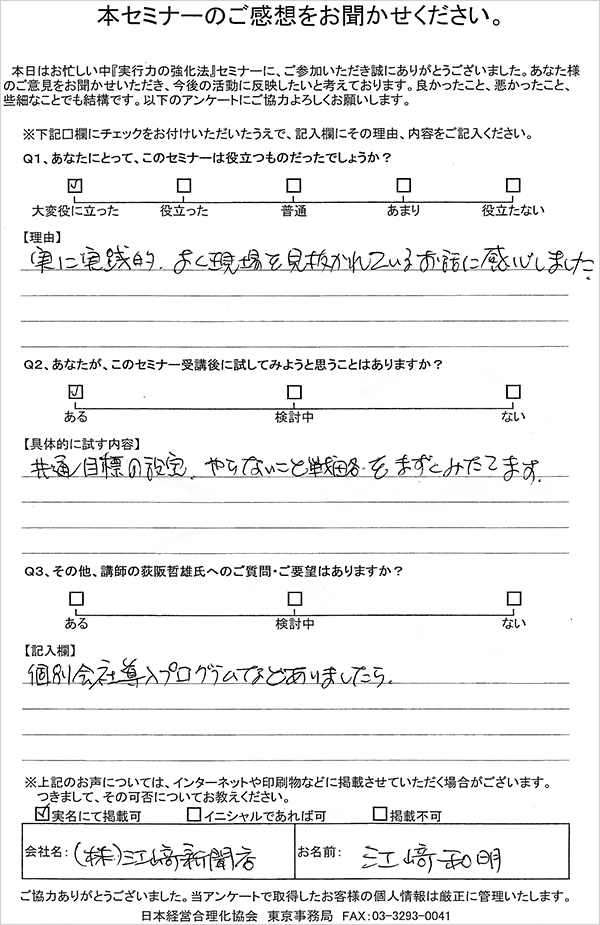 本セミナーのご感想をお聞かせください。
本日はお忙しい中『実行力の強化法』セミナーに、ご参加いただき誠にありがとうございました。あなた様
のご意見をお聞かせいただき、今後の活動に反映したいと考えております。良かったこと、悪かったこと、
些細なことでも結構です。以下のアンケートにご協力よろしくお願いします。
※下記口欄にチェックをお付けいただいたうえで、記入欄にその理由、内容をご記入ください。
Q1、あなたにとって、このセミナーは役立つものだったでしょうか？
大変役に立った 役立った 普通 あまり 役立たない
【理由】
実に実践的、よく現場を見抜かれているお話に感心しました
Q2、あなたが、このセミナー受講後に試してみようと思うことはありますか？
ある 検討中 ない
【具体的に試す内容】
共通目標の設定、やらないこと戦略をまずくみたてます。
Q3、その他、講師の荻阪哲雄氏へのご質問・ご要望はありますか？
ある 検討中 ない
【記入欄】
個別会社導入プログラムなどありましたら。
※上記のお声については、インターネットや印刷物などに掲載させていただく場合がございます。
つきまして、その可否についてお教えください。
実名にて掲載可 イニシャルであれば可 掲載不可
会社名: (株)江﨑新聞店 お名前: 江﨑和明
ご協力ありがとうございました。当アンケートで取得したお客様の個人情報は厳正に管理いたします。
日本経営合理化協会 東京事務局 FAX:03-3293-0041